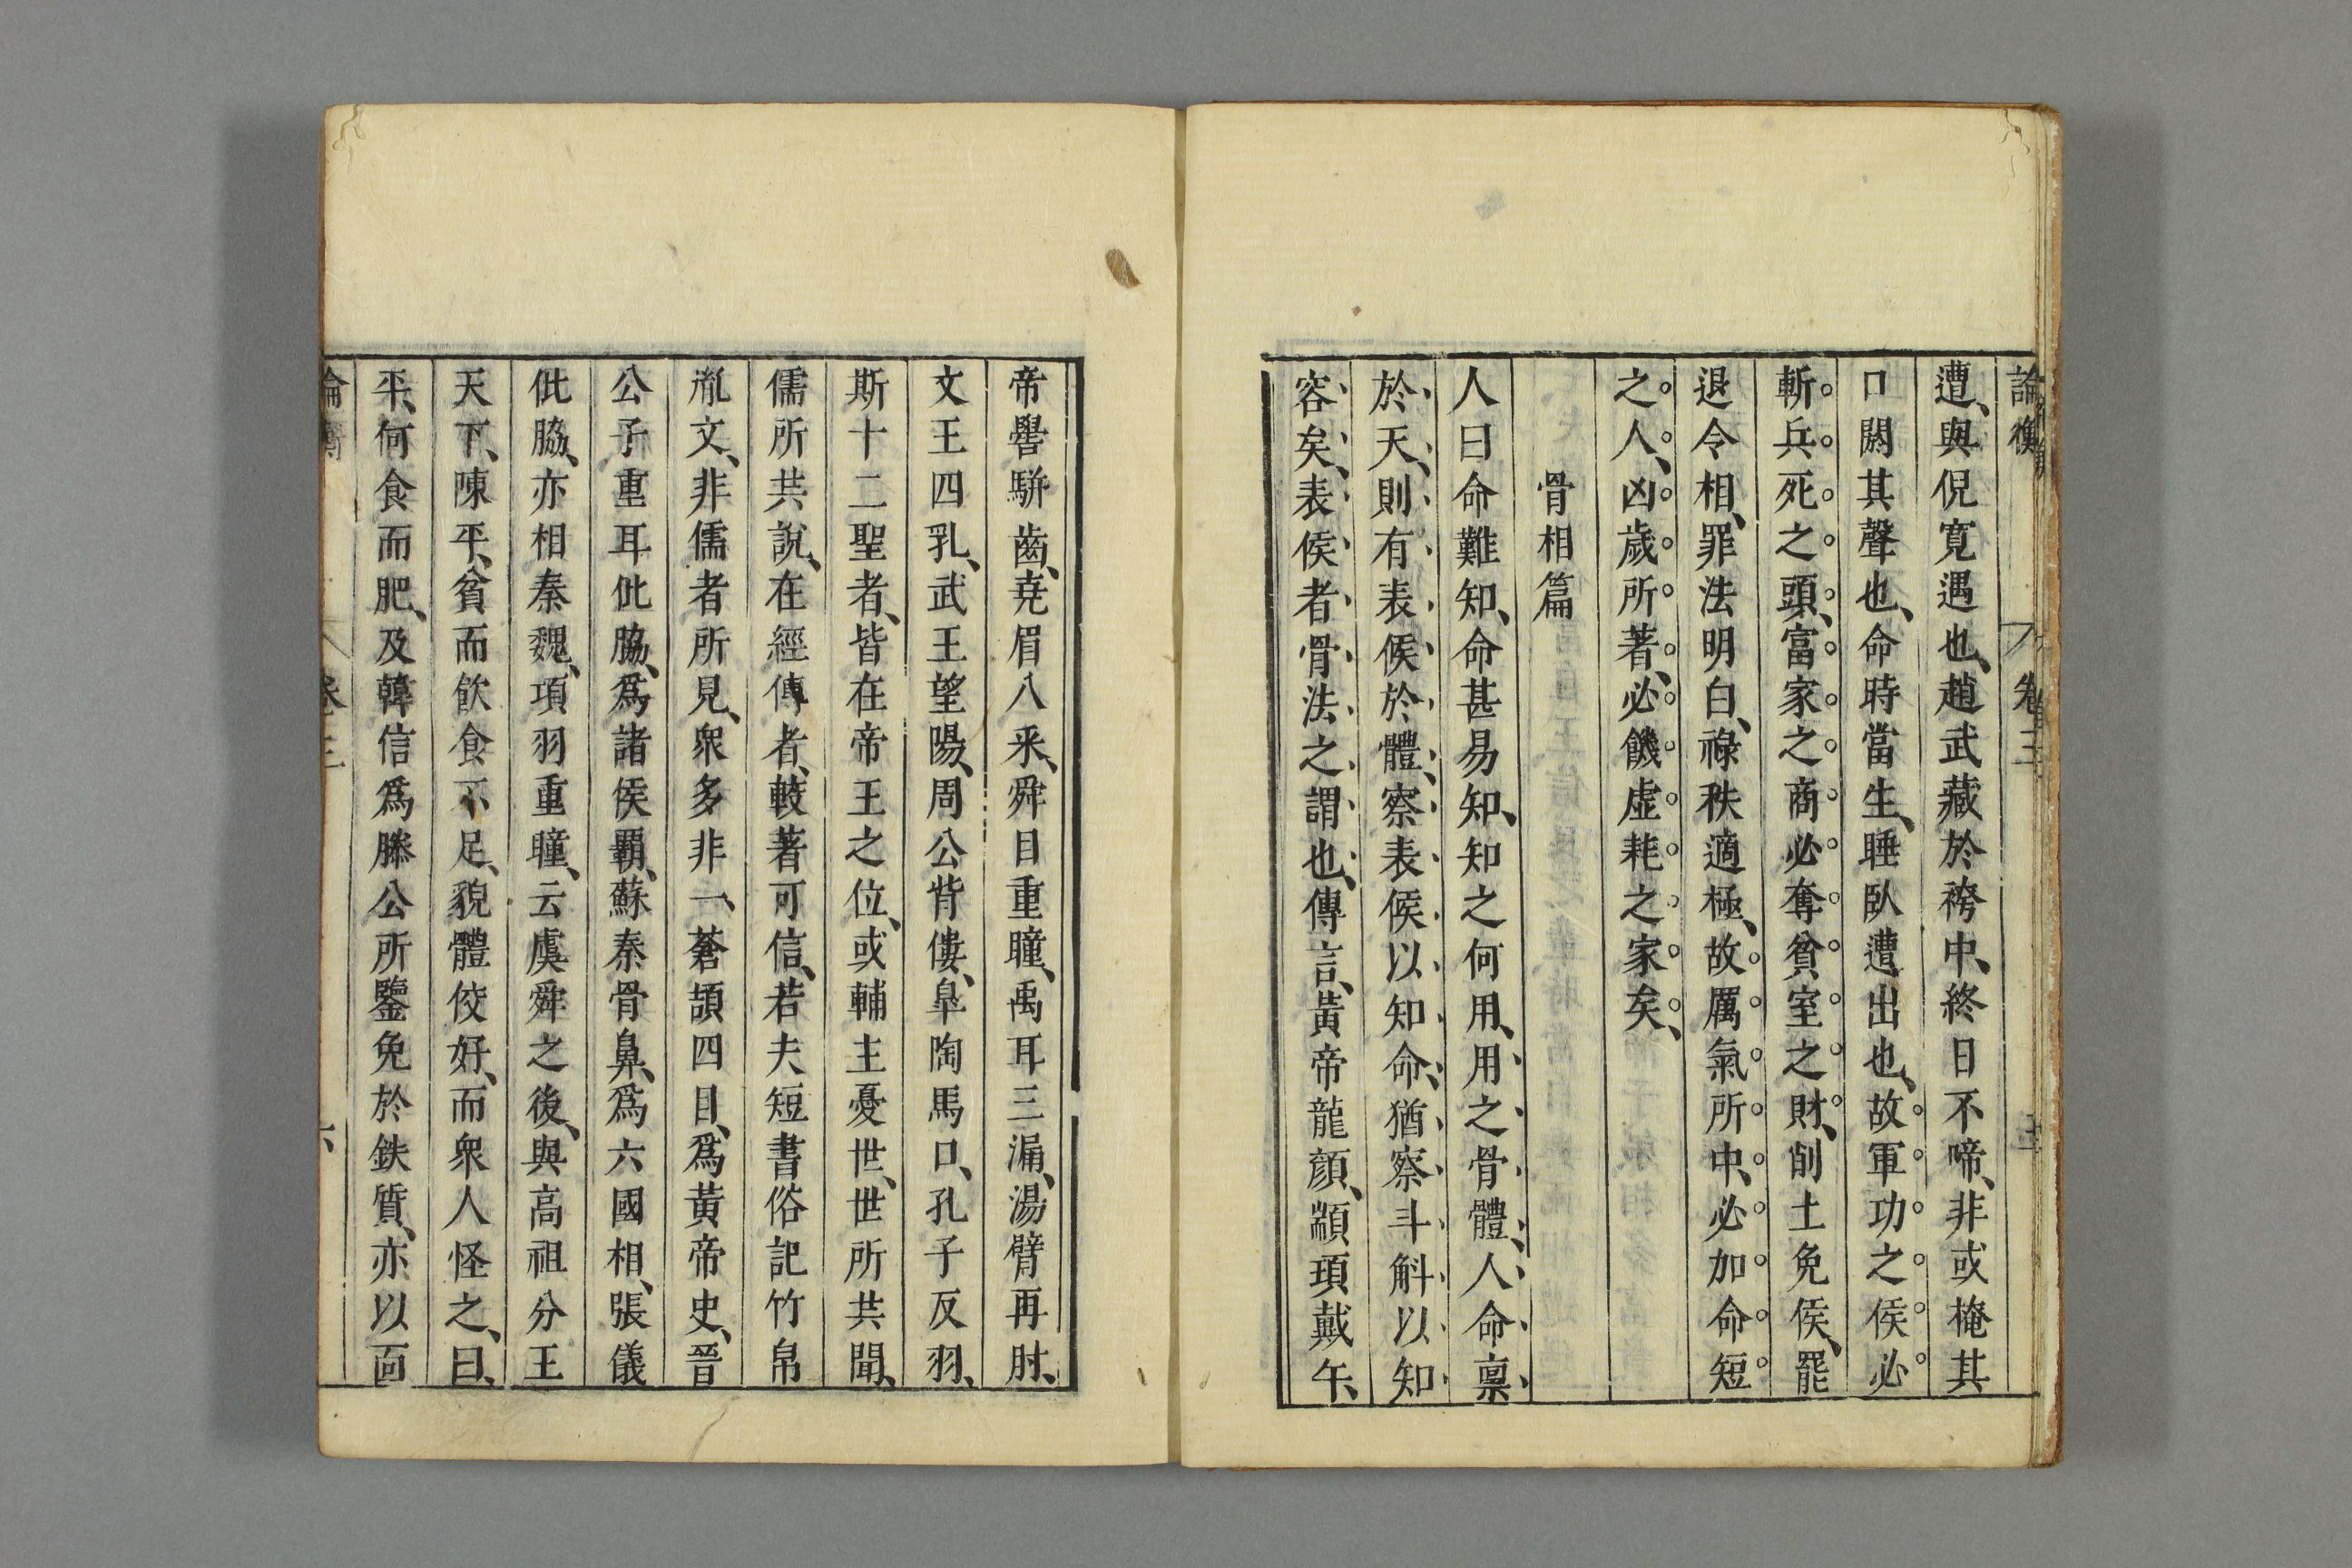 論衡 卷三
遭、與倪寛遇也、趙武藏於袴中、終日不啼、非或掩其
口閼其聲也、命時當生、睡臥遭出也、故軍功之侯必
斬兵死之頭、富家之商必奪貧室之財、削土免侯、罷
退令相、罪法明白、祿秩適極、故厲氣所中、必加命短
之人、凶歲所著、必饑虛耗之家矣、
骨相篇
人曰命難知、命甚易知、知之何用、用之骨體、人命稟
於天、則有表候於體、察表候以知命、猶察斗斛以知
容矣、表侯者骨法之謂也、傳言、黃帝龍顏、顓頊戴午、
帝嚳駢齒、堯眉八釆、舜目重瞳、禹耳三漏、湯臂再肘、
文王四乳、武王望陽、周公背僂、皐陶馬口、孔子反羽、
斯十二聖者、皆在帝王之位、或輔主憂世、世所共聞、
儒所共說、在經傳者、較著可信、若夫短書俗記竹帛
胤文、非儒者所見、衆多非一、蒼頡四目、爲黄帝史、晉
公子重耳仳脇、爲諸侯覇、蘇秦骨鼻、爲六國相、張儀
仳脇、亦相秦魏、項羽重瞳、云虞舜之後、與高祖分王
天下、陳平、貧而飲食不足、貌體佼好、而衆人怪之、曰、
平、何食而肥、及韓信爲滕公所鑒免於鈇質、亦以面
論衡 卷三 六